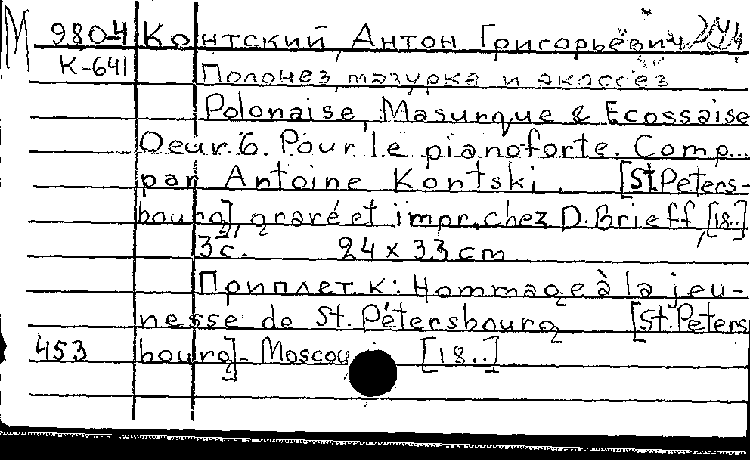 М 9804 Контский, Антон Григорьевич
К-641 Полонез, мазурка и экоссез
Polonaise, Masurque & Ecossaise
Oeuv. 6. Pour le pianoforte. Comp...
par Antoine Kontski. [St. Peters-
bourg], gravé et impr. chez D. Brieff, [18..]
3 с. 24 x 33 cm
Приплет. к: Hommage à la jeu-
nesse de St. Pétersbourg [St. Peters
453 bourg]- Moscou [18..]